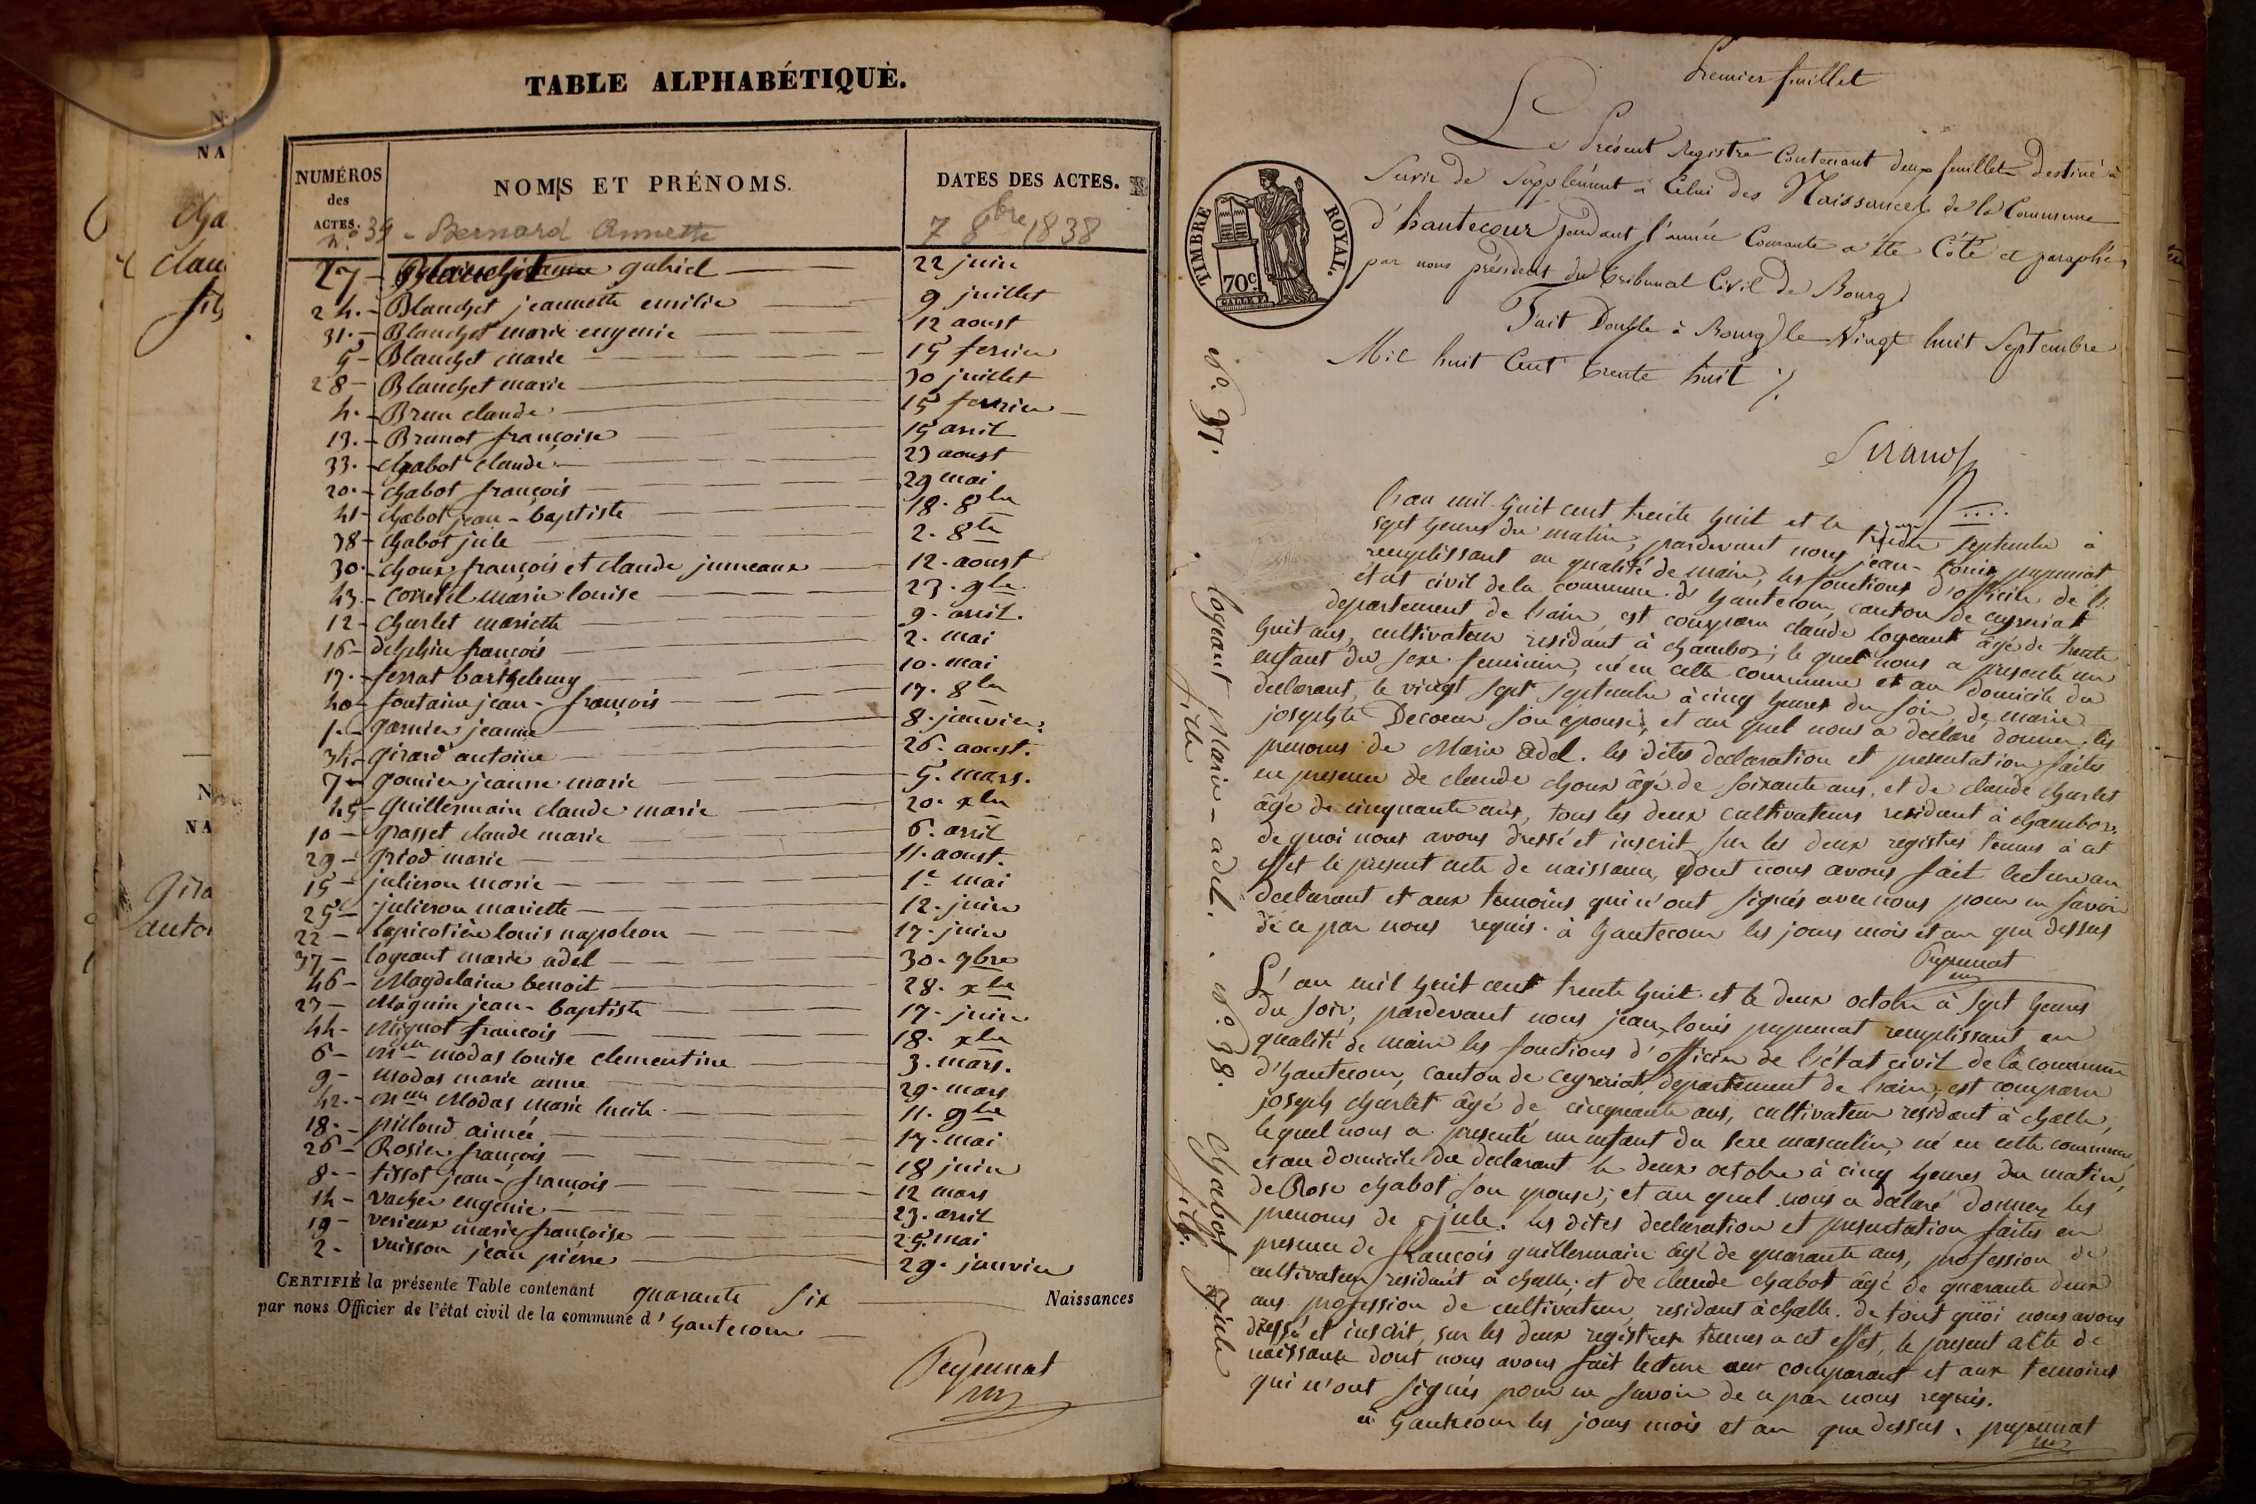 N
NA
cha
clau
fils
N
NA
gira
antoi
TABLE ALPHABÉTIQUE.
NUMÉROS des ACTES.
NOMS ET PRÉNOMS.
DATES DES ACTES.
n° 39 - Bernard Annette 7 8bre 1838
27 - gabriel 22 juin
24. - Blanchet jeannette emilie 9 juillet
31. - Blanchet marie eugenie 12 aoust
5 - Blanchet marie 15 fevrier
28 - Blanchet marie 30 juillet
4. - Brun claude 15 fevrier
13. - Brunot françoise 15 avril
33. - chabot claude 23 aoust
20. - chabot françois 29 mai
41 - chabot jean-baptiste 18. 8bre
38 - chabot jule 2. 8bre
30. - choux françois et claude jumeaux 12. aoust
43. - marie louise 23. 9bre
12 - charlet mariette 9. avril.
16 - delphin françois 2. mai
17. - ferrat barthelemy 10. mai
40 - fontaine jean-françois 17. 8bre
1. - garnier jeanne 8. janvier.
34. - girard antoine 26. aoust.
7 - gonier jeanne marie 5. mars.
45 - guillermain claude marie 20. xbre
10 - grasset claude marie 6. avril
29 - griod marie 11. aoust.
15 - julieron marie 1er mai
25 - julieron mariette 12. juin
22 - lapicotiere louis napoleon 17. juin
37 - logeant marie adel 30. 7bre
46 - Magdelaine benoit 28. xbre
23 - Moguin jean-baptiste 17. juin
44 - Mignot françois 18. xbre
6 - modas louise clementine 3. mars.
9 - modas marie anne 29. mars
42. - Modas marie lucile 11. 9bre
18. - pilloud aimée 17. mai
26 - Rosier françois 18 juin
8 - tissot jean-françois 12 mars
14 - vacher eugenie 23. avril
19 - verieux marie françoise 25. mai
2. vuisson jean pierre 29. janvier
CERTIFIÉ la présente Table contenant quarante six Naissances
par nous Officier de l'état civil de la commune d'hautecour
Peyseunat
Premier feuillet
Le Présent Registre Contenant deux feuillets Destiné à
Servir de Supplément à Celui des Naissances de la Commune
d'hautecour pendant l'année Courante a été Côté et paraphé,
par nous président du Tribunal Civil de Bourg
Fait Double à Bourg le Vingt huit Septembre
Mil huit Cent trente huit
TIMBRE ROYAL.
70c.
n°. 37.
logeant Marie-adel.
fille
L'an mil huit cent trente huit et le trente septembre à
sept heures du matin, pardevant nous jean-louis
remplissant en qualité de maire, les fonctions d'officier de l'
état civil de la commune d'hautecour, canton de ceyzeriat
departement de l'ain, est comparu claude logeant âgé de trente
huit ans, cultivateur residant à chambor; le quel nous a presenté un
enfant du sexe feminin, né en cette commune et au domicile du
declarant, le vingt sept septembre à cinq heures du soir, de marie
josephte Decoeur son epouse; et au quel nous a declaré donner les
prenoms de Marie adel. les dites declaration et presentation faites
en presence de claude choux âgé de soixante ans, et de claude charlet
âgé de cinquante ans, tous les deux cultivateurs residant à chambor,
de quoi nous avons dressé et inscrit sur les deux registres tenus à cet
effet le present acte de naissance, dont nous avons fait lecture au
declarant et aux temoins qui n'ont signés avec nous pour ne savoir
de ce par nous requis. à hautecour les jours mois et an que dessus
n°. 38. chabot jule
fils.
L'an mil huit cent trente huit et le deux octobre à sept heures
du soir, pardevant nous jean-louis remplissant en
qualité de maire les fonctions d'officier de l'état civil de la commune
d'hautecour, canton de ceyzeriat departement de l'ain, est comparu
joseph charlet âgé de cinquante ans, cultivateur residant à challe,
le quel nous a presenté un enfant du sexe masculin, né en cette commune
et au domicile du declarant le deux octobre à cinq heures du matin,
de Rose chabot son epouse; et au quel nous a declaré donner les
prenoms de jule. les dites declaration et presentation faites en
presence de françois guillermain âgé de quarante ans, profession de
cultivateur residant à challe; et de claude chabot âgé de quarante deux
ans profession de cultivateur, residant à challe. de tout quoi nous avons
dressé et inscrit, sur les deux registres tenus a cet effet, le present acte de
naissance dont nous avons fait lecture aux comparant et aux temoins
qui n'ont signés pour ne savoir de ce par nous requis.
à hautecour les jours mois et an que dessus.